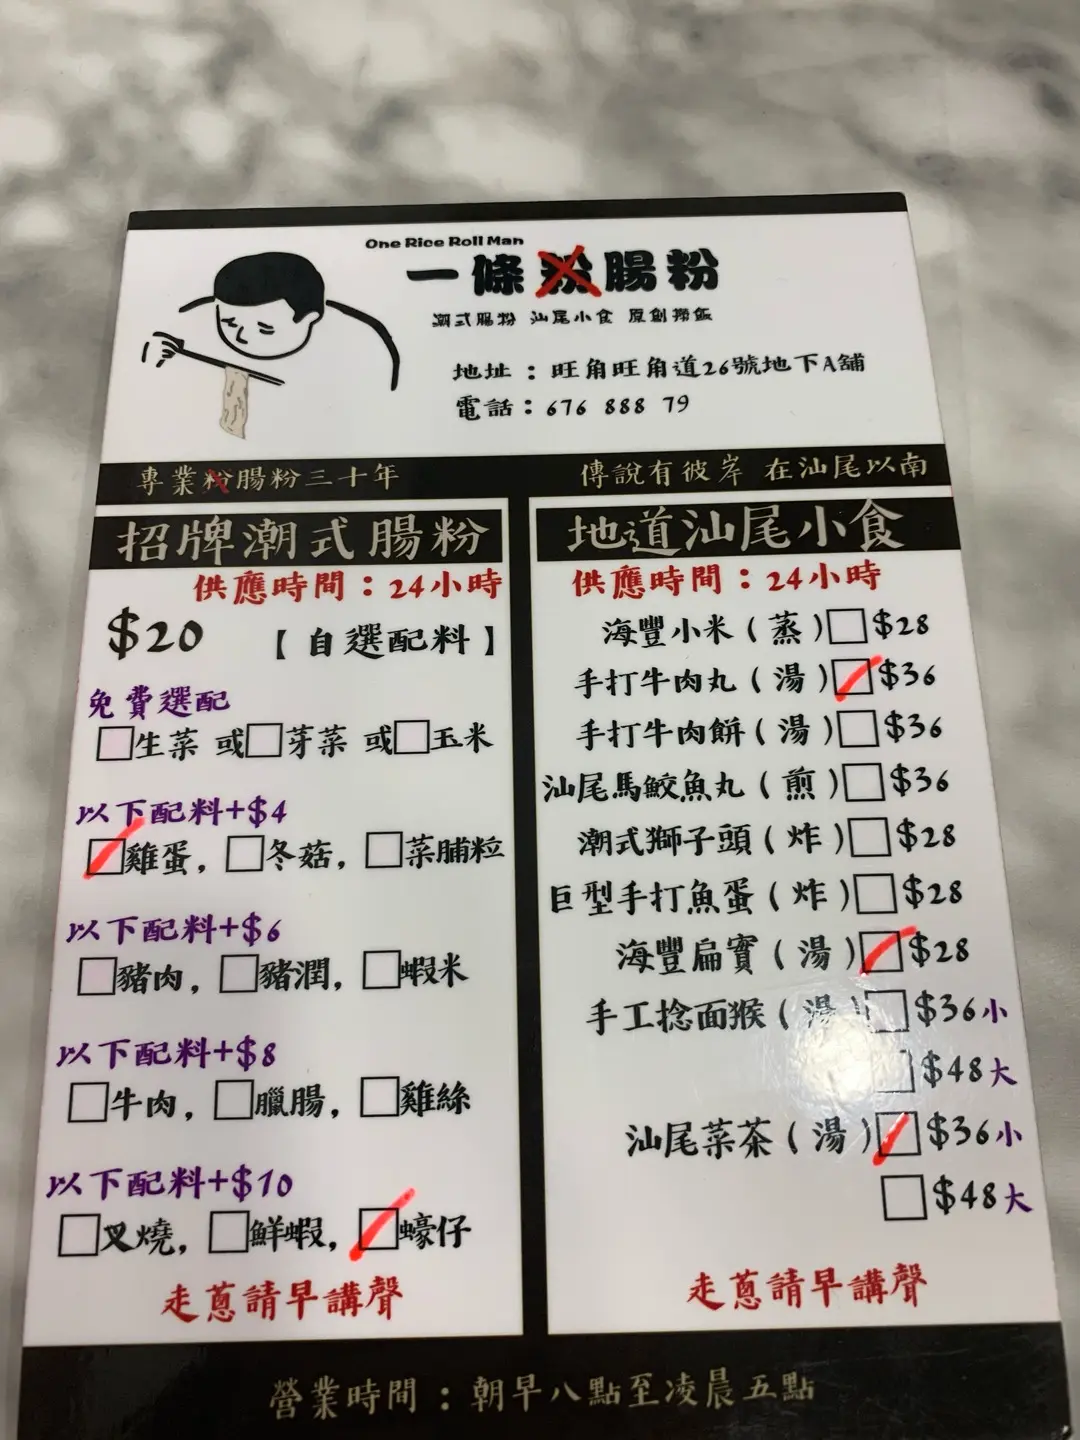 One Rice Roll Man
一條粉腸粉
潮式腸粉 汕尾小食 原創撈飯
地址：旺角旺角道26號地下A舖
電話：676 888 79
專業粉腸粉三十年
傳說有彼岸 在汕尾以南
招牌潮式腸粉
供應時間：24小時
$20 【自選配料】
免費選配
生菜 或 芽菜 或 玉米
以下配料+$4
雞蛋，冬菇，菜脯粒
以下配料+$6
豬肉，豬潤，蝦米
以下配料+$8
牛肉，臘腸，雞絲
以下配料+$10
叉燒，鮮蝦，蠔仔
走蔥請早講聲
地道汕尾小食
供應時間：24小時
海豐小米（蒸）$28
手打牛肉丸（湯）$36
手打牛肉餅（湯）$36
汕尾馬鮫魚丸（煎）$36
潮式獅子頭（炸）$28
巨型手打魚蛋（炸）$28
海豐扁實（湯）$28
手工捻面猴（湯）$36小
$48大
汕尾菜茶（湯）$36小
$48大
走蔥請早講聲
營業時間：朝早八點至凌晨五點